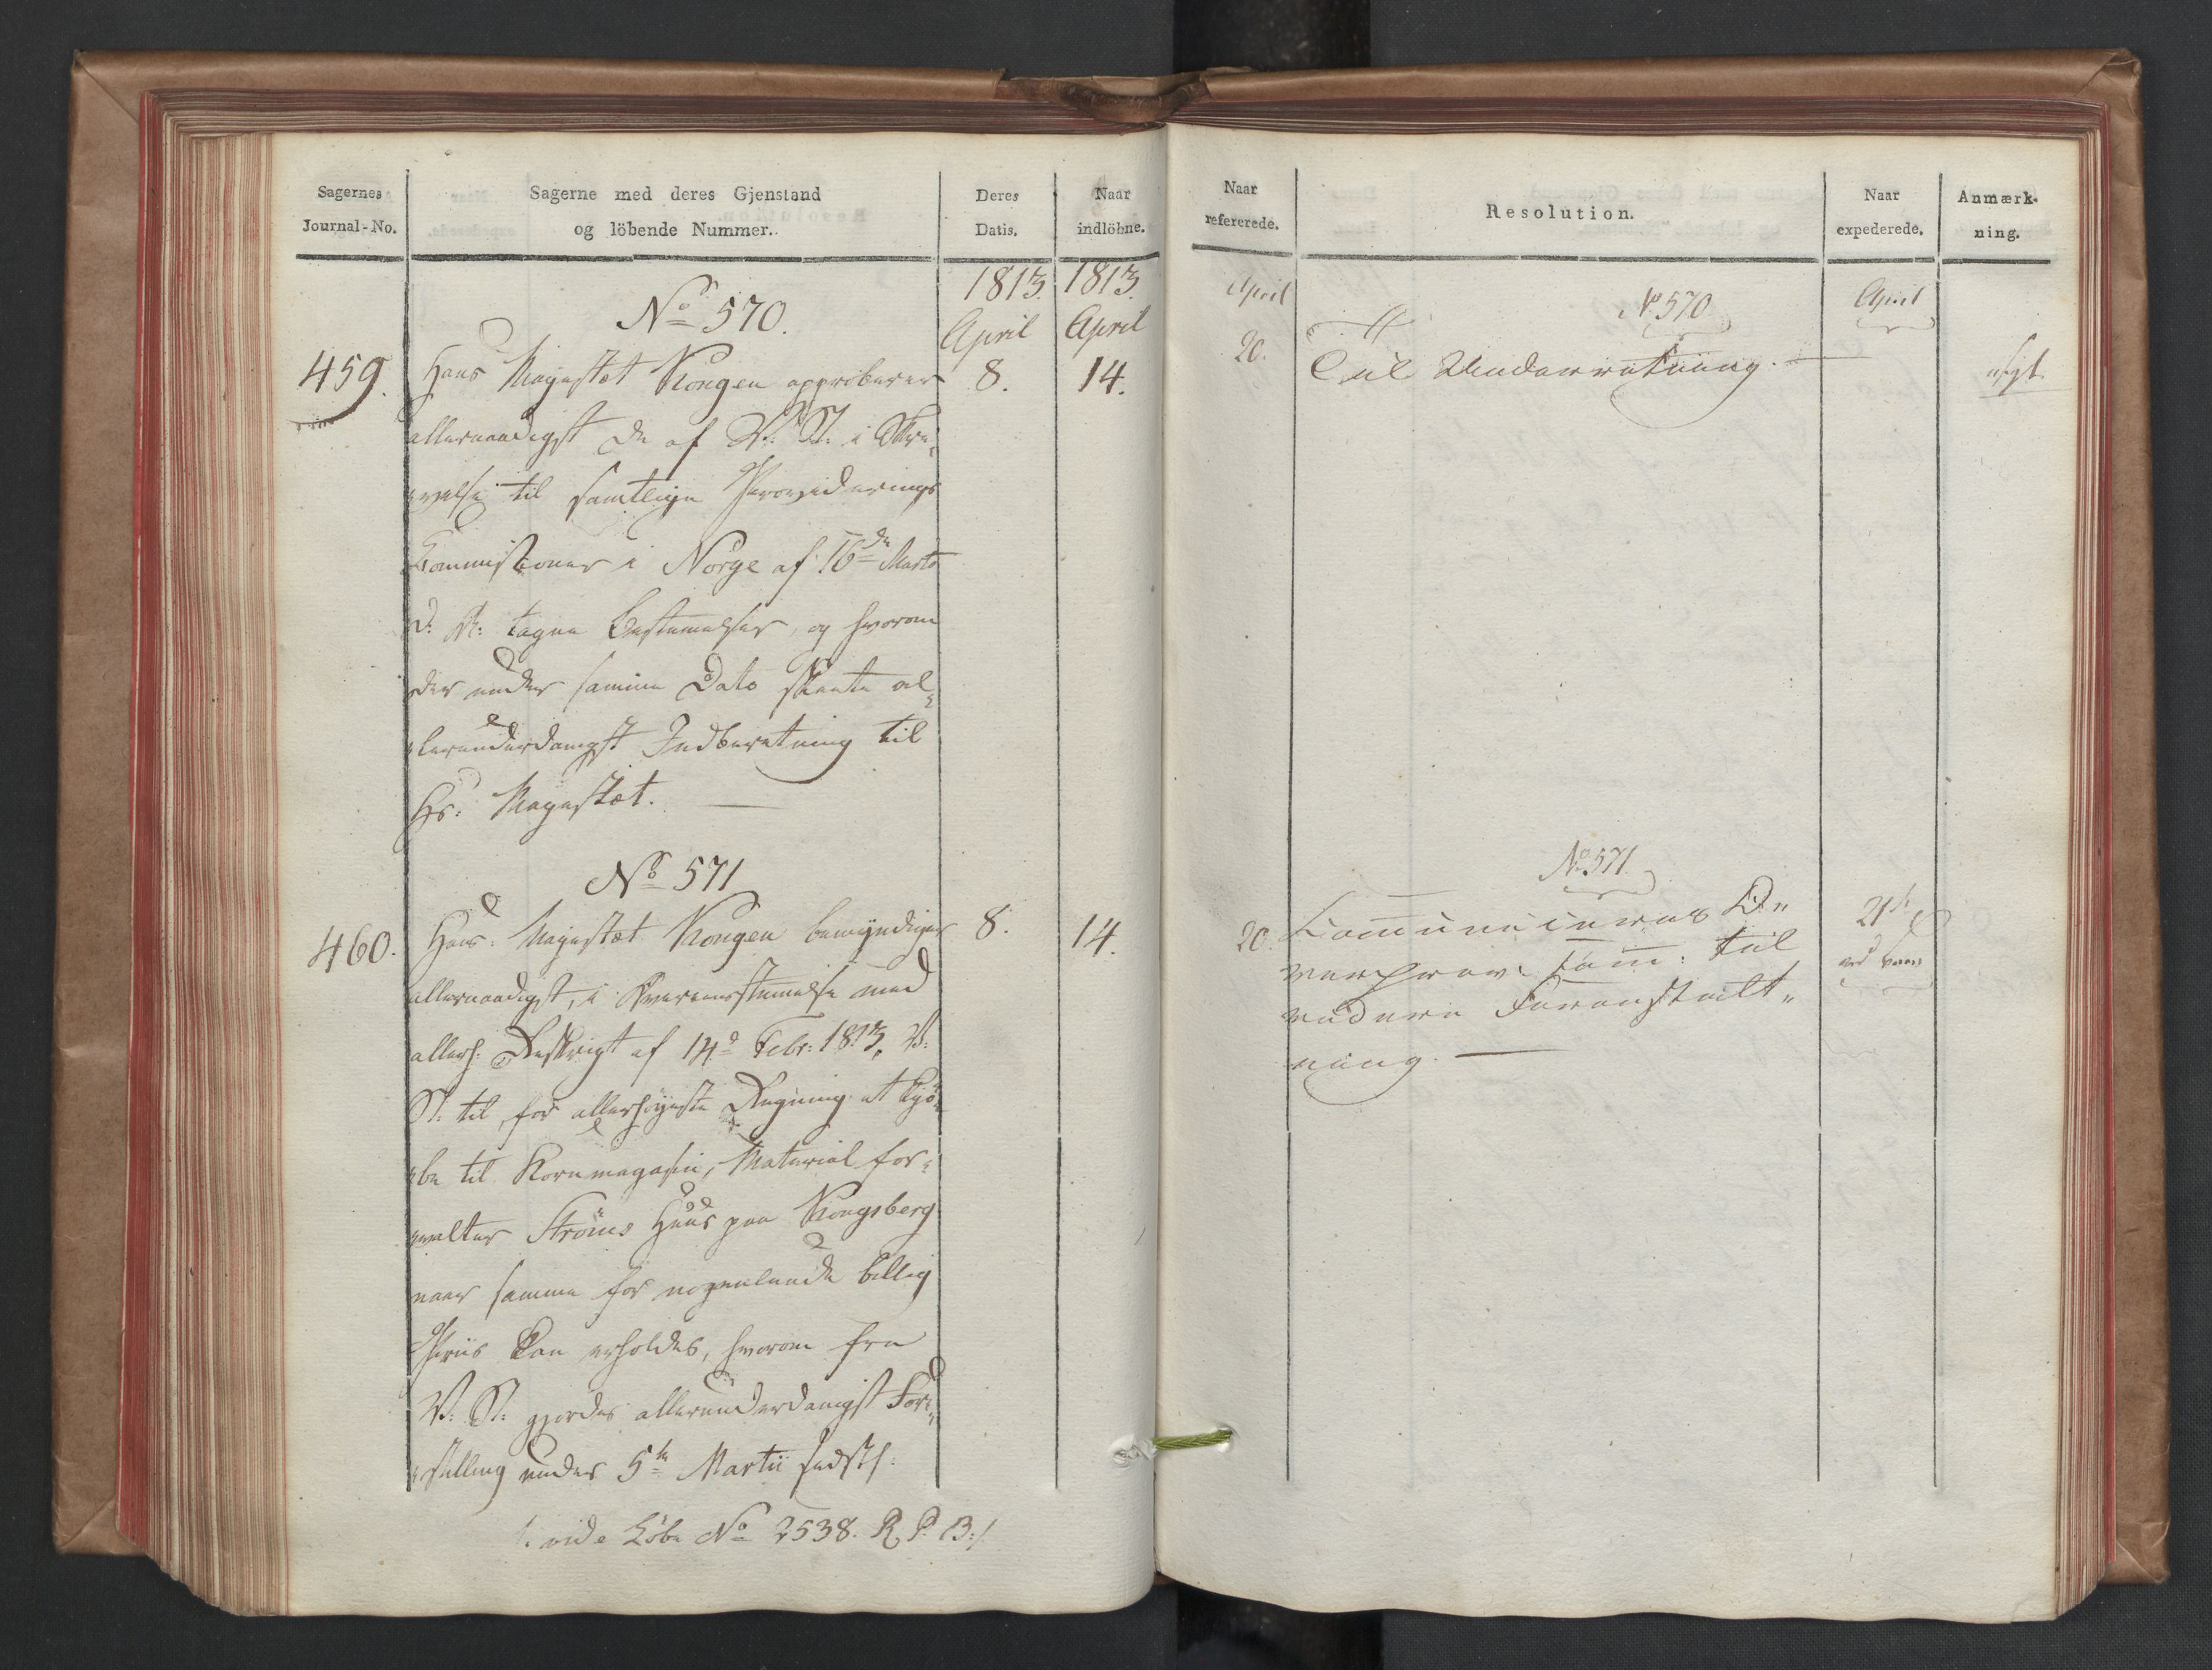 Sagernes
Journal-No.
Sagerne med deres Gjenstand
og löbende Nummer.
Deres
Datis.
Naar
indlöbne.
1813. 1813.
April April
No 570.
459. Hans Majestæt Kongen approberer 8. 14.
allernaadigst de af V: St: i Skri„
„velse til samtlige Providerings
Commissioner i Norge af 16de Marts
d: A: tagne Bestemelser, og hvorom
der under samme Dato skeete al„
„lerunderdanigst Indberetning til
Hs: Majestæt. —
No 571
460. Hans Majestæt Kongen bemyndiger 8. 14.
allernaadigst, i Overeensstemmelse med
allerh: Reskript af 14d Febr: 1813, V:
St: til for allerhøyeste Regning at kjö„
„be til Kornmagasin, Material for„
„valter Ströms Huus paa Kongsberg
naar samme for nogenlunde billig
Priis kan erholdes, hvorom fra
V: St: gjordes allerunderdanigst Fore„
„stilling under 5te Martii sidstl:
/: vide Löbe No 2538. R. P. B:/
Naar
refererede.
Resolution.
Naar
expederede.
Anmærk-
ning.
April
No 570
April
20. Til Underretning. —
No 571.
20. Communiceres
til
videre Foranstalt„
ning. —
21de